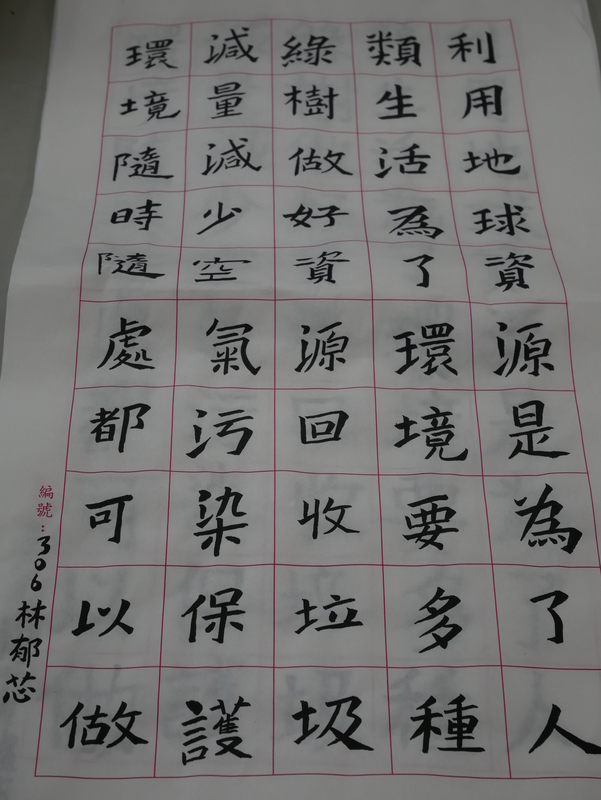 利用地球資源是為了人
類生活為了環境要多種
綠樹做好資源回收垃圾
減量減少空氣污染保護
環境隨時隨處都可以做
編號：306林郁芯